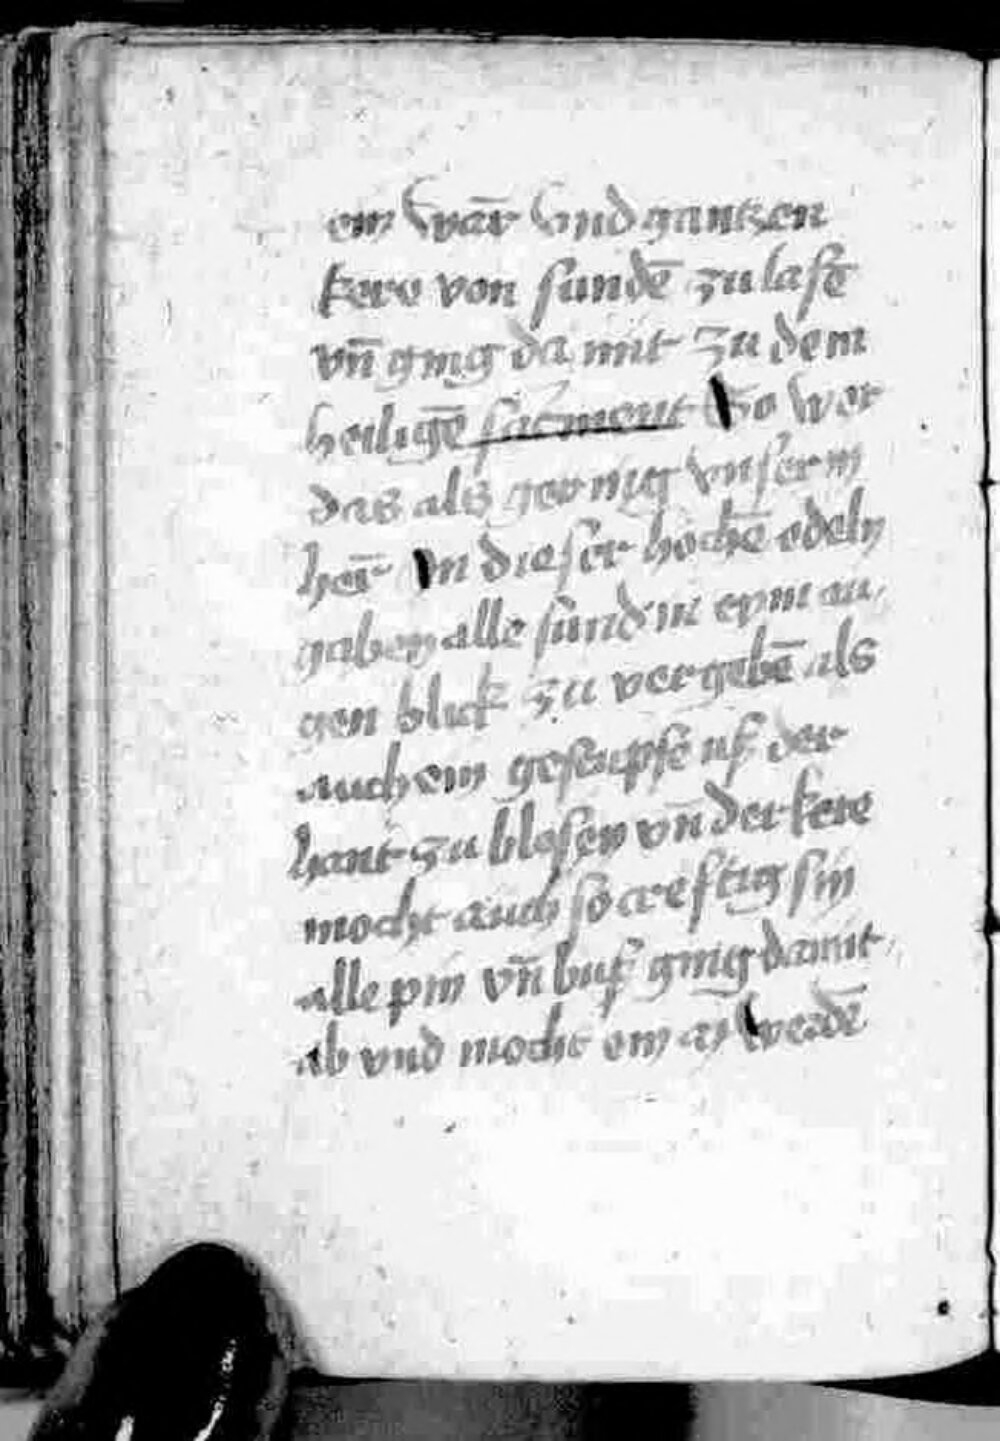 ein war vnd gantzen
kere von sundē zu lasē
vn̄ ging da mit zu dem
heiligē sacment So wer
das als gering vnserm
her̄ In dieser hochē edeln
gaben alle sund in eym au,
gen blick zu vergebē als
auch ein geseupfe uf der
hant zu blasen vn̄ der kere
mocht auch so creftig sin
alle pin vn̄ buß ging damit
ab vnd mocht ein werdē